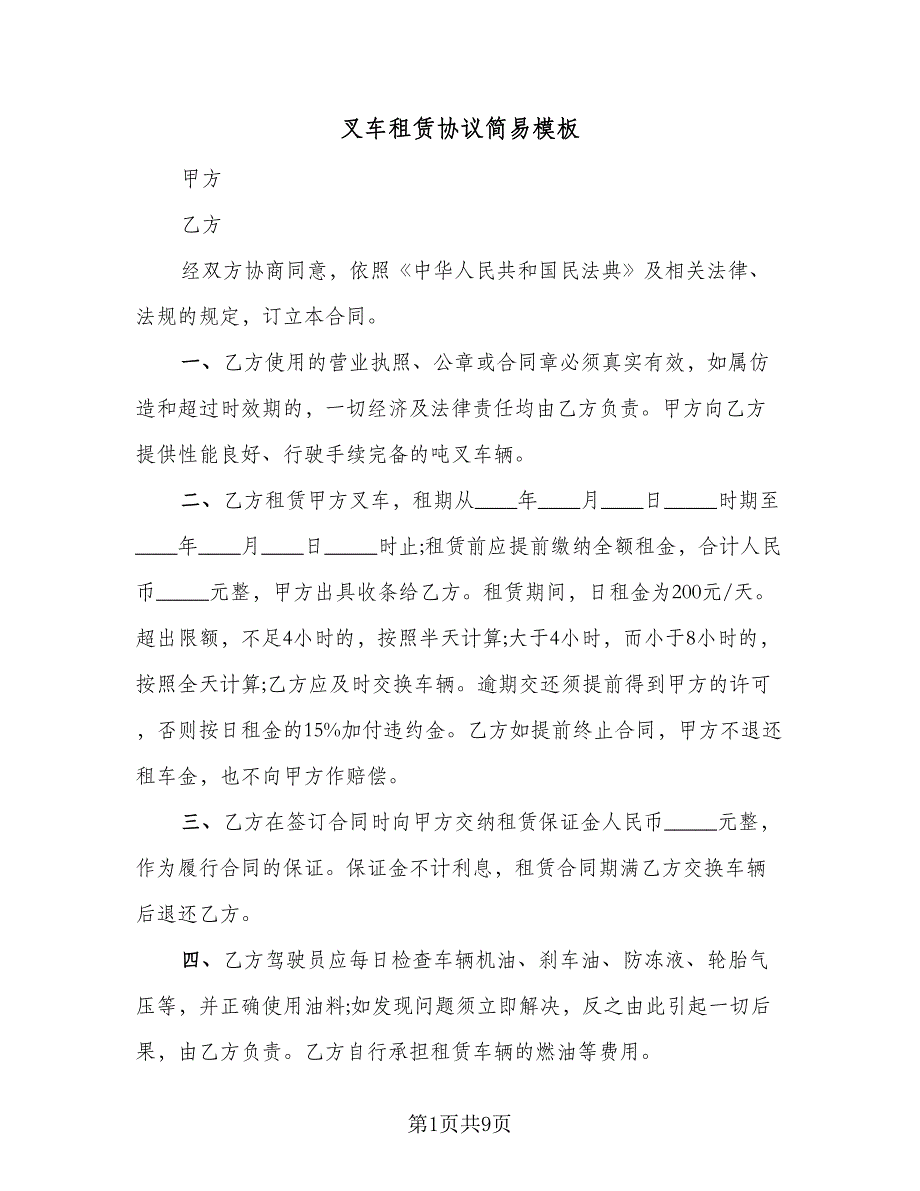 叉车租赁协议简易模板
甲方
乙方
经双方协商同意，依照《中华人民共和国民法典》及相关法律、
法规的规定，订立本合同。
一、乙方使用的营业执照、公章或合同章必须真实有效，如属仿
造和超过时效期的，一切经济及法律责任均由乙方负责。甲方向乙方
提供性能良好、行驶手续完备的吨叉车辆。
二、乙方租赁甲方叉车，租期从____年____月____日_____时期至
____年____月____日_____时止;租赁前应提前缴纳全额租金，合计人民
币_____元整，甲方出具收条给乙方。租赁期间，日租金为200元/天。
超出限额，不足4小时的，按照半天计算;大于4小时，而小于8小时的，
按照全天计算;乙方应及时交换车辆。逾期交还须提前得到甲方的许可
，否则按日租金的15%加付违约金。乙方如提前终止合同，甲方不退还
租车金，也不向甲方作赔偿。
三、乙方在签订合同时向甲方交纳租赁保证金人民币_____元整，
作为履行合同的保证。保证金不计利息，租赁合同期满乙方交换车辆
后退还乙方。
四、乙方驾驶员应每日检查车辆机油、刹车油、防冻液、轮胎气
压等，并正确使用油料;如发现问题须立即解决，反之由此引起一切后
果，由乙方负责。乙方自行承担租赁车辆的燃油等费用。
第1页共9页